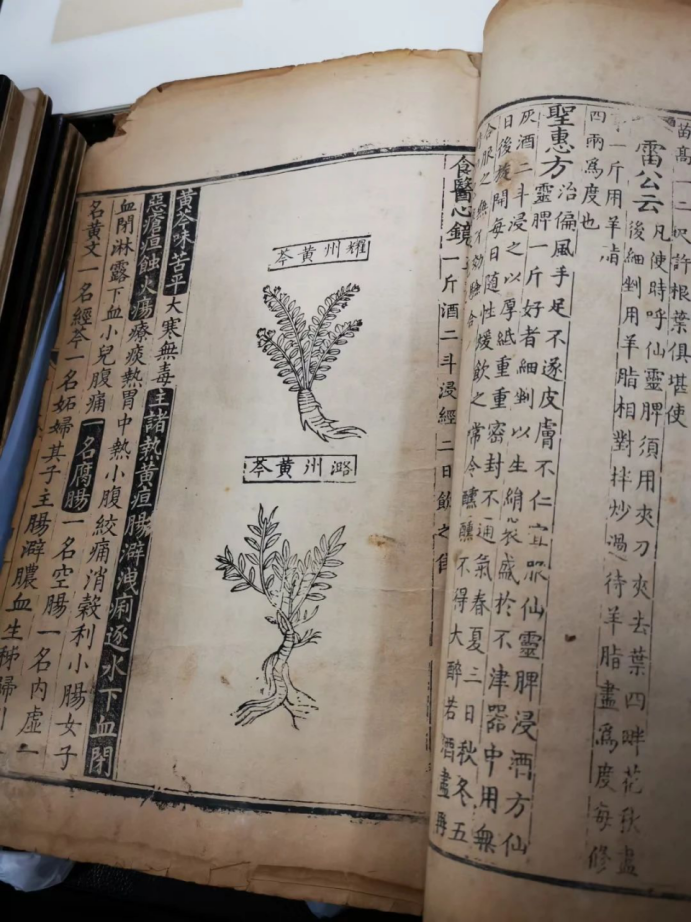 苗高一二尺許根葉俱堪使
雷公云凡使時呼仙靈脾須用夾刀夾去葉四畔花盡
後細剉用羊脂相對拌炒過待羊脂盡爲度每修
一斤用羊脂
四兩爲度也
聖惠方治偏風手足不遂皮膚不仁宜服仙靈脾浸酒方仙
靈脾一斤好者細剉以生絹袋盛於不津器中用無
灰酒二斗浸之以厚紙重重密封不通氣春夏三日秋冬五
日後旋開每日隨性煖飲之常令醺醺不得大醉若酒盡再
合服之無不効驗合
食醫心鏡一斤酒二斗浸經二日飲之佳
耀州黄芩
潞州黄芩
黃芩味苦平大寒無毒主諸熱黃疸腸澼洩痢逐水下血閉
惡瘡疽蝕火瘍療痰熱胃中熱小腹絞痛消穀利小腸女子
血閉淋露下血小兒腹痛一名腐腸一名空腸一名內虛一
名黄文一名經芩一名妬婦其子主腸澼膿血生秭歸川